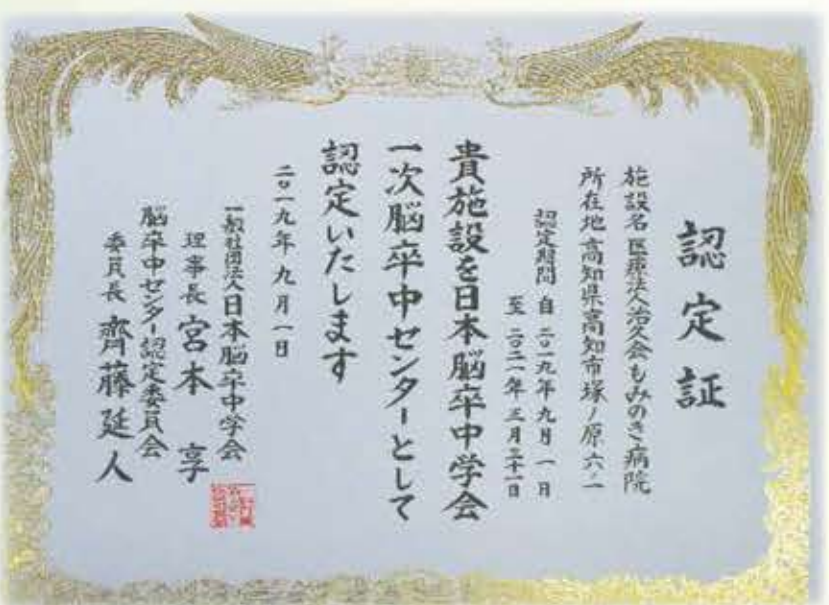 認定証
施設名 医療法人治久会もみのき病院
所在地 高知県高知市塚ノ原六ノ一
認定期間 自 二〇一九年九月一日
至 二〇二一年三月三十一日
貴施設を日本脳卒中学会
一次脳卒中センターとして
認定いたします
二〇一九年九月一日
一般社団法人日本脳卒中学会
理事長 宮本 享
脳卒中センター認定委員会
委員長 齊藤延人